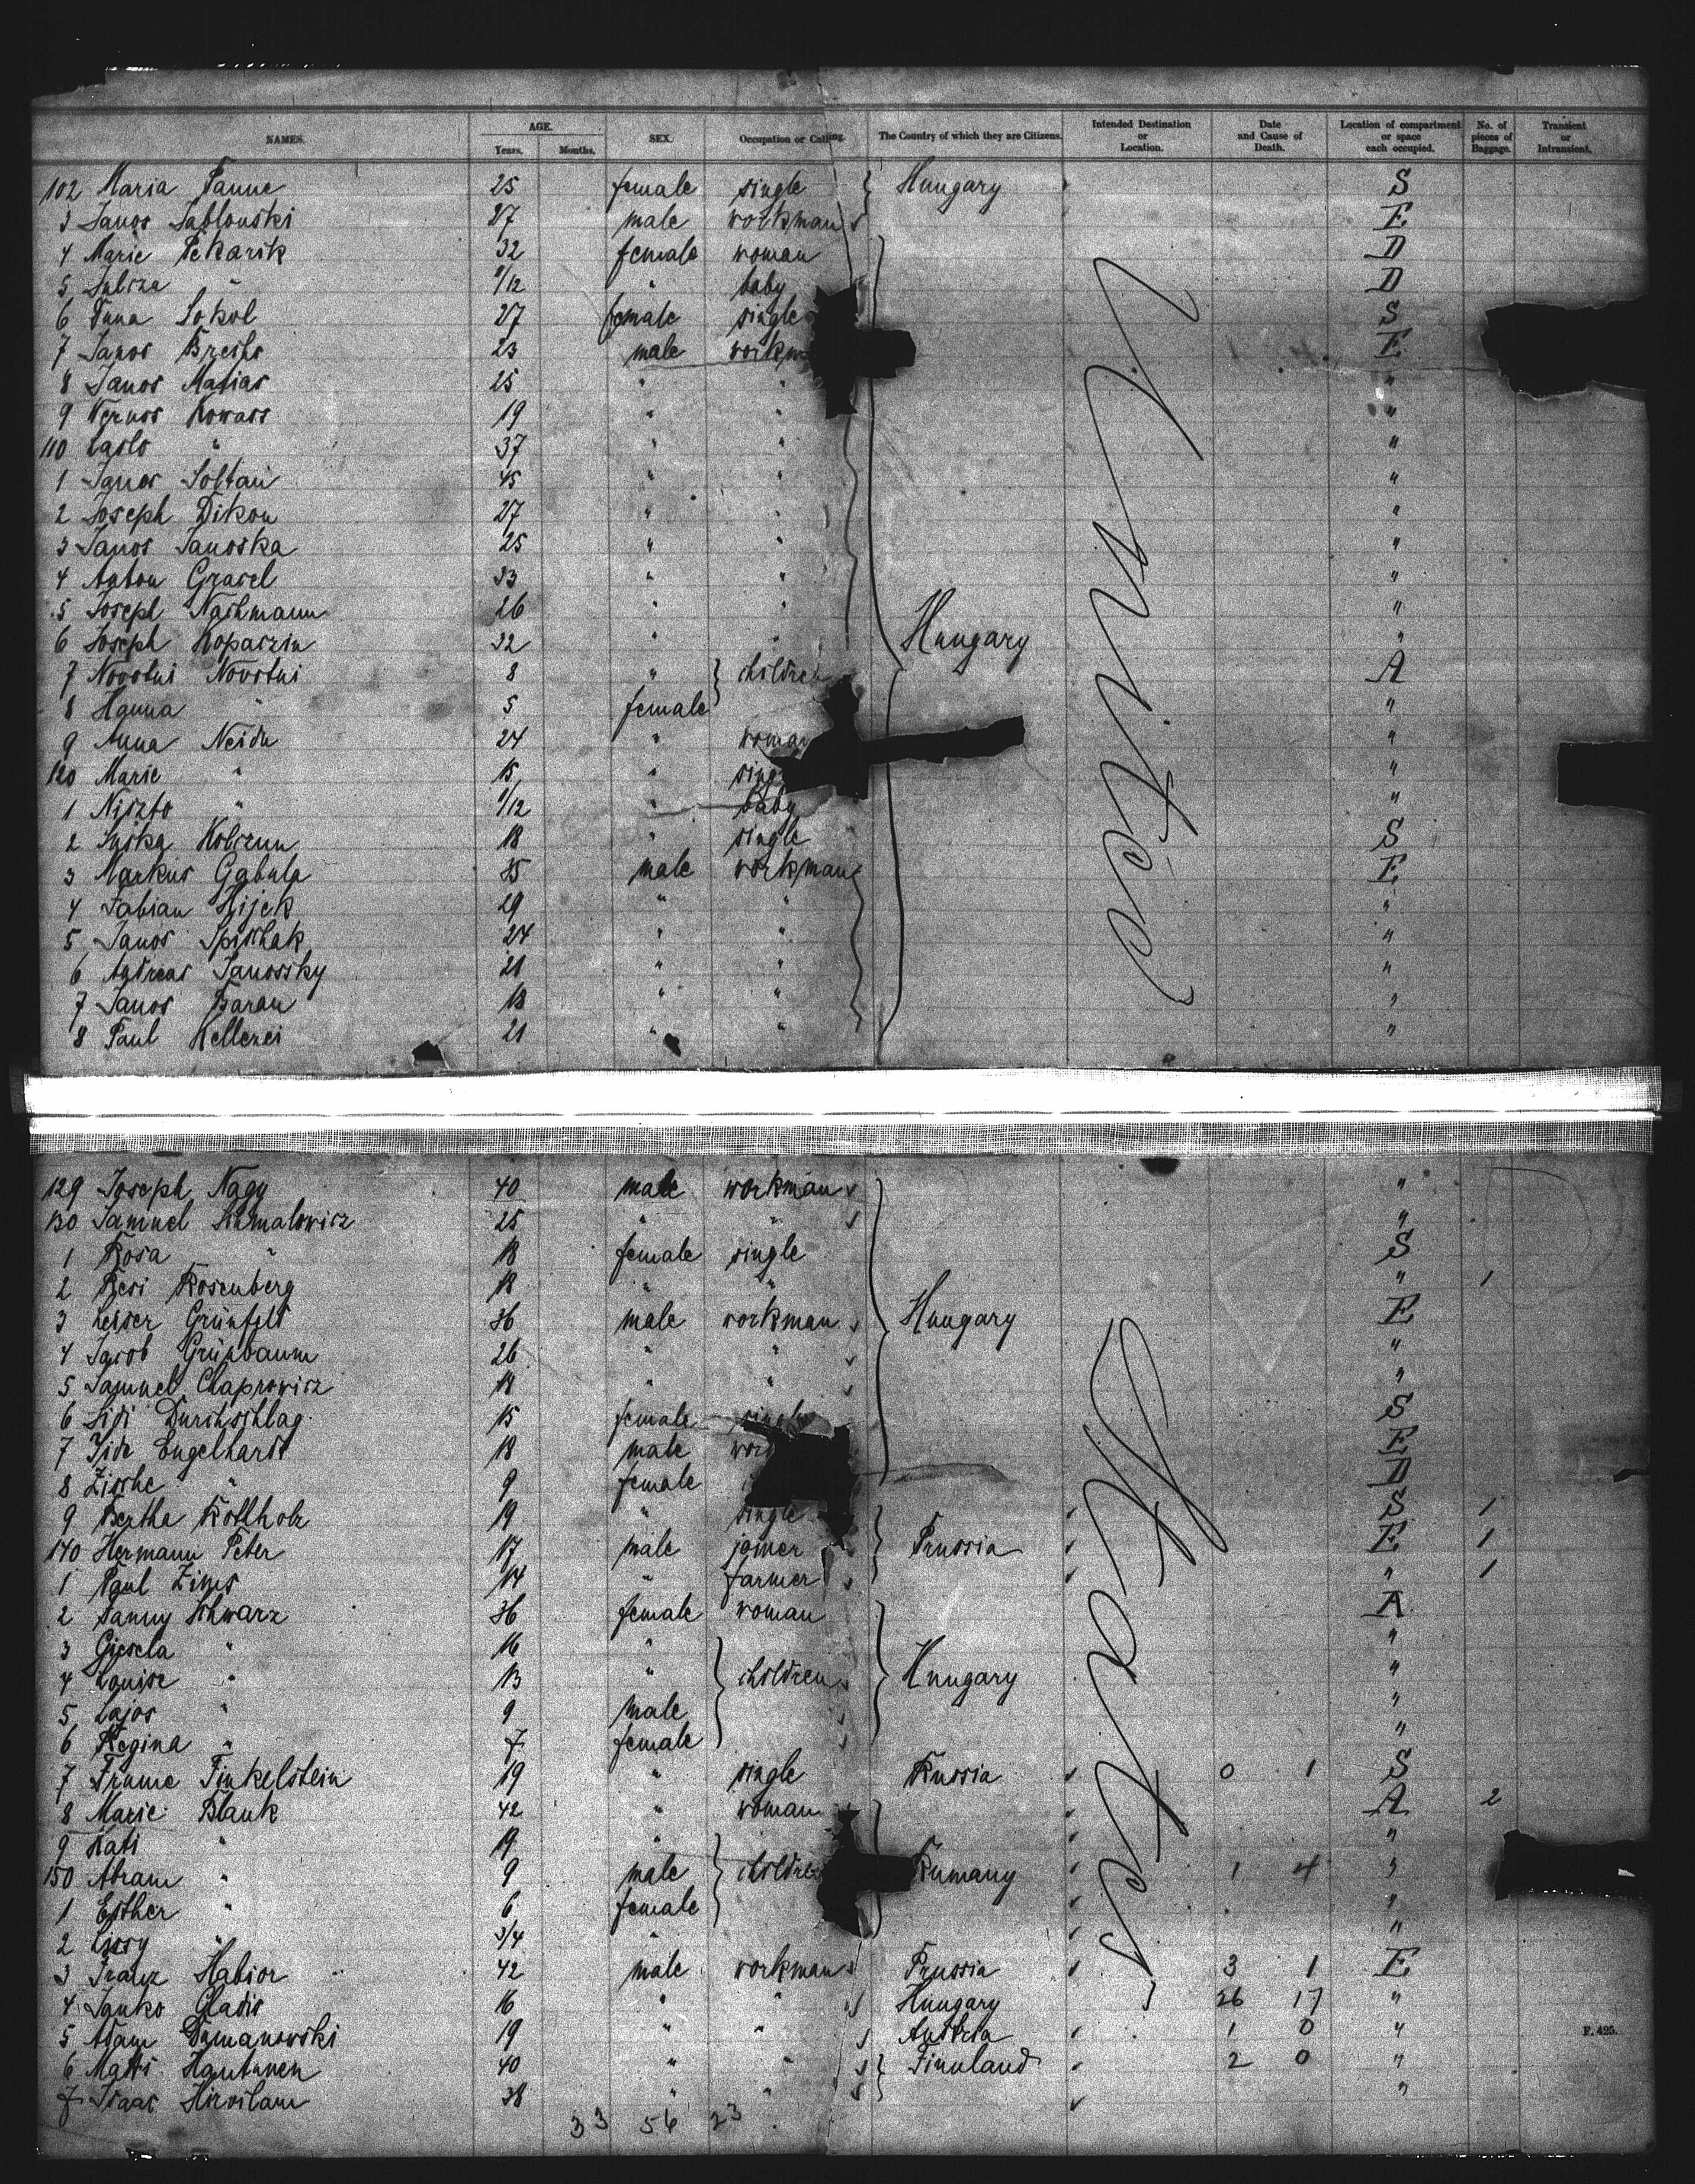 NAMES. AGE. Years. Months. SEX. Occupation or Calling. The Country of which they are Citizens. Intended Destination or Location. Date and Cause of Death. Location of compartment or space each occupied. No. of pieces of Baggage. Transient or Intransient.
102 Maria 25 female single Hungary S
3 Janos Jablonski 27 male workman E
4 Marie Pekarik 32 female woman D
5 " /12 " baby D
6 Sokol 27 female single S
7 Janos 23 male E
8 Janos Matias 25 " " "
9 19 " " "
110 Laslo " 37 " " "
1 Janos Soltan 45 " " "
2 Joseph Dikon 27 " " "
3 Janos Janoska 25 " " "
4 Anton Grasel 33 " " "
5 Joseph Nachmann 26 " " "
6 Joseph 32 " " Hungary "
7 Novotni Novotni 8 " children A
8 Hanna " 5 female "
9 Anna 24 " woman "
120 Marie " 15 " "
1 " /12 " baby "
2 18 " single S
3 Markus Gabula 35 male workman E
4 Fabian Hijek 29 " " "
5 Janos Spischak 24 " " "
6 Andreas Janossky 21 " " "
7 Janos Baran 18 " " "
8 Paul 21 " " "
129 Joseph Nagy 40 male workman "
130 Samuel Schmalowicz 25 " " "
1 Rosa " 18 female single S
2 Resi Rosenberg 18 " " " 1
3 Leiser Grünfeld 36 male workman Hungary E
4 Jacob Grünbaum 26 " " "
5 Samuel Chaprowicz 18 " " "
6 Durchschlag 15 female single S
7 Engelhardt 18 male E
8 Zische " 9 female D
9 Bertha 19 " single S 1
140 Hermann Peter 17 male joiner Prussia E 1
1 Paul 14 " farmer " 1
2 Fanny Schwarz 36 female woman A
3 Gisela " 16 " "
4 Louise " 13 " children Hungary "
5 Lajos " 9 male "
6 Regina " 7 female "
7 Frume Finkelstein 19 " single Russia 0 1 S
8 Marie Blank 42 " woman A 2
9 Kati " 19 " "
150 Abram " 9 male children Rumany 1 4 "
1 Esther " 6 female "
2 " 3/4 " "
3 Franz Habior 42 male workman Prussia 3 1 E
4 Janko Gladis 16 " " Hungary 26 17 "
5 Adam Domanowski 19 " " Austria 1 0 "
6 Matts Hautanen 40 " " Finnland 2 0 "
7 Isaac 38 " " "
33 56 23
F. 425.